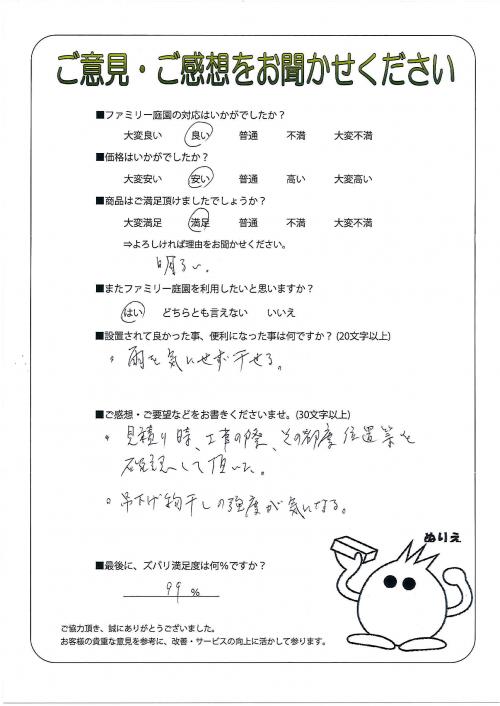 ご意見・ご感想をお聞かせください
■ファミリー庭園の対応はいかがでしたか？
大変良い 良い 普通 不満 大変不満
■価格はいかがでしたか？
大変安い 安い 普通 高い 大変高い
■商品はご満足頂けましたでしょうか？
大変満足 満足 普通 不満 大変不満
⇒よろしければ理由をお聞かせください。
明るい。
■またファミリー庭園を利用したいと思いますか？
はい どちらとも言えない いいえ
■設置されて良かった事、便利になった事は何ですか？(20文字以上)
。雨を気にせず干せる。
■ご感想・ご要望などをお書きくださいませ。(30文字以上)
。見積り時、工事の際、その都度位置等を
確認して頂いた。
。吊下げ物干しの強度が気になる。
ぬりえ
■最後に、ズバリ満足度は何%ですか？
99 %
ご協力頂き、誠にありがとうございました。
お客様の貴重な意見を参考に、改善・サービスの向上に活かして参ります。